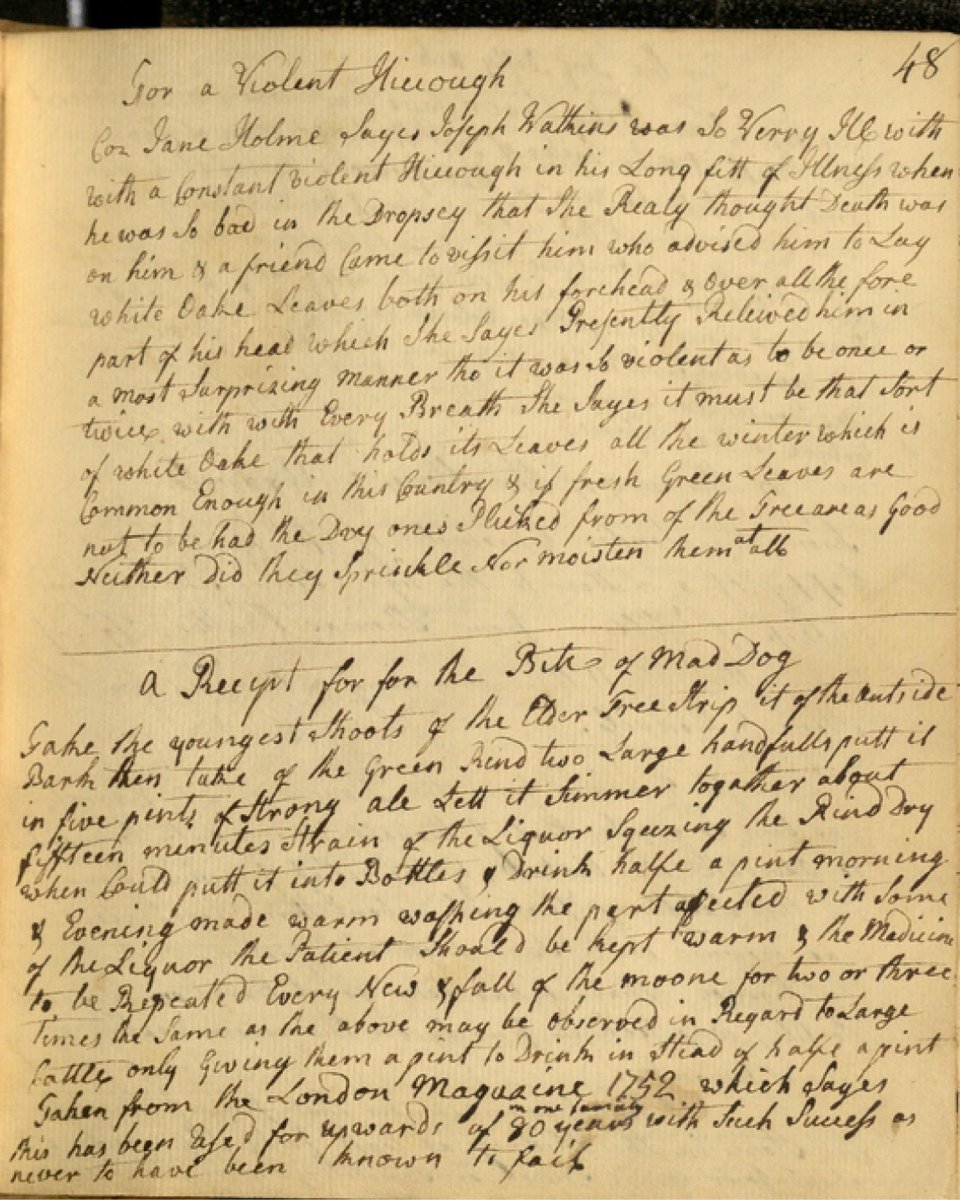 48
For a Violent Hiccough
Coz Jane Holme Sayes Joseph Watkins was So Verry Ill with
with a Constant violent Hiccough in his Long fitt of Illness when
he was So bad in the Dropsey that She Realy thought Death was
on him & a friend Came to vissit him who advised him to Lay
white Oake Leaves both on his forehead & over all the fore
part of his head which She Sayes Presently Releived him in
a most Surprizing manner tho it was So violent as to be once or
twice with with Every Breath She Sayes it must be that Sort
of white Oake that holds its Leaves all the winter which is
Common Enough in this Country & if fresh Green Leaves are
not to be had the Dry ones Plucked from of the Tree are as Good
Neither Did they Sprinkle Nor moisten them at all
a Receipt for for the Bite of Mad Dog
Take the youngest Shoots of the Elder Tree Strip it of the outside
Bark then take of the Green Rind two Large handfulls putt it
in five pints of Strong ale Lett it Simmer together about
fiffteen minutes Strain of the Liquor Sqeezing the Rind Dry
when Could putt it into Bottles & Drink halfe a pint morning
& Evening made warm washing the part afected with Some
of the Liquor the Patient Should be kept warm & the Medicine
to be Repeated Every New & full of the moone for two or three
times the Same as the above may be observed in Regard to Large
Cattle only Giving them a pint to Drink in Stead of halfe a pint
Taken from the London Magazine 1752 which Sayes
this has been Used for upwards of 80 years in one family with Such Success as
never to have been known to fail